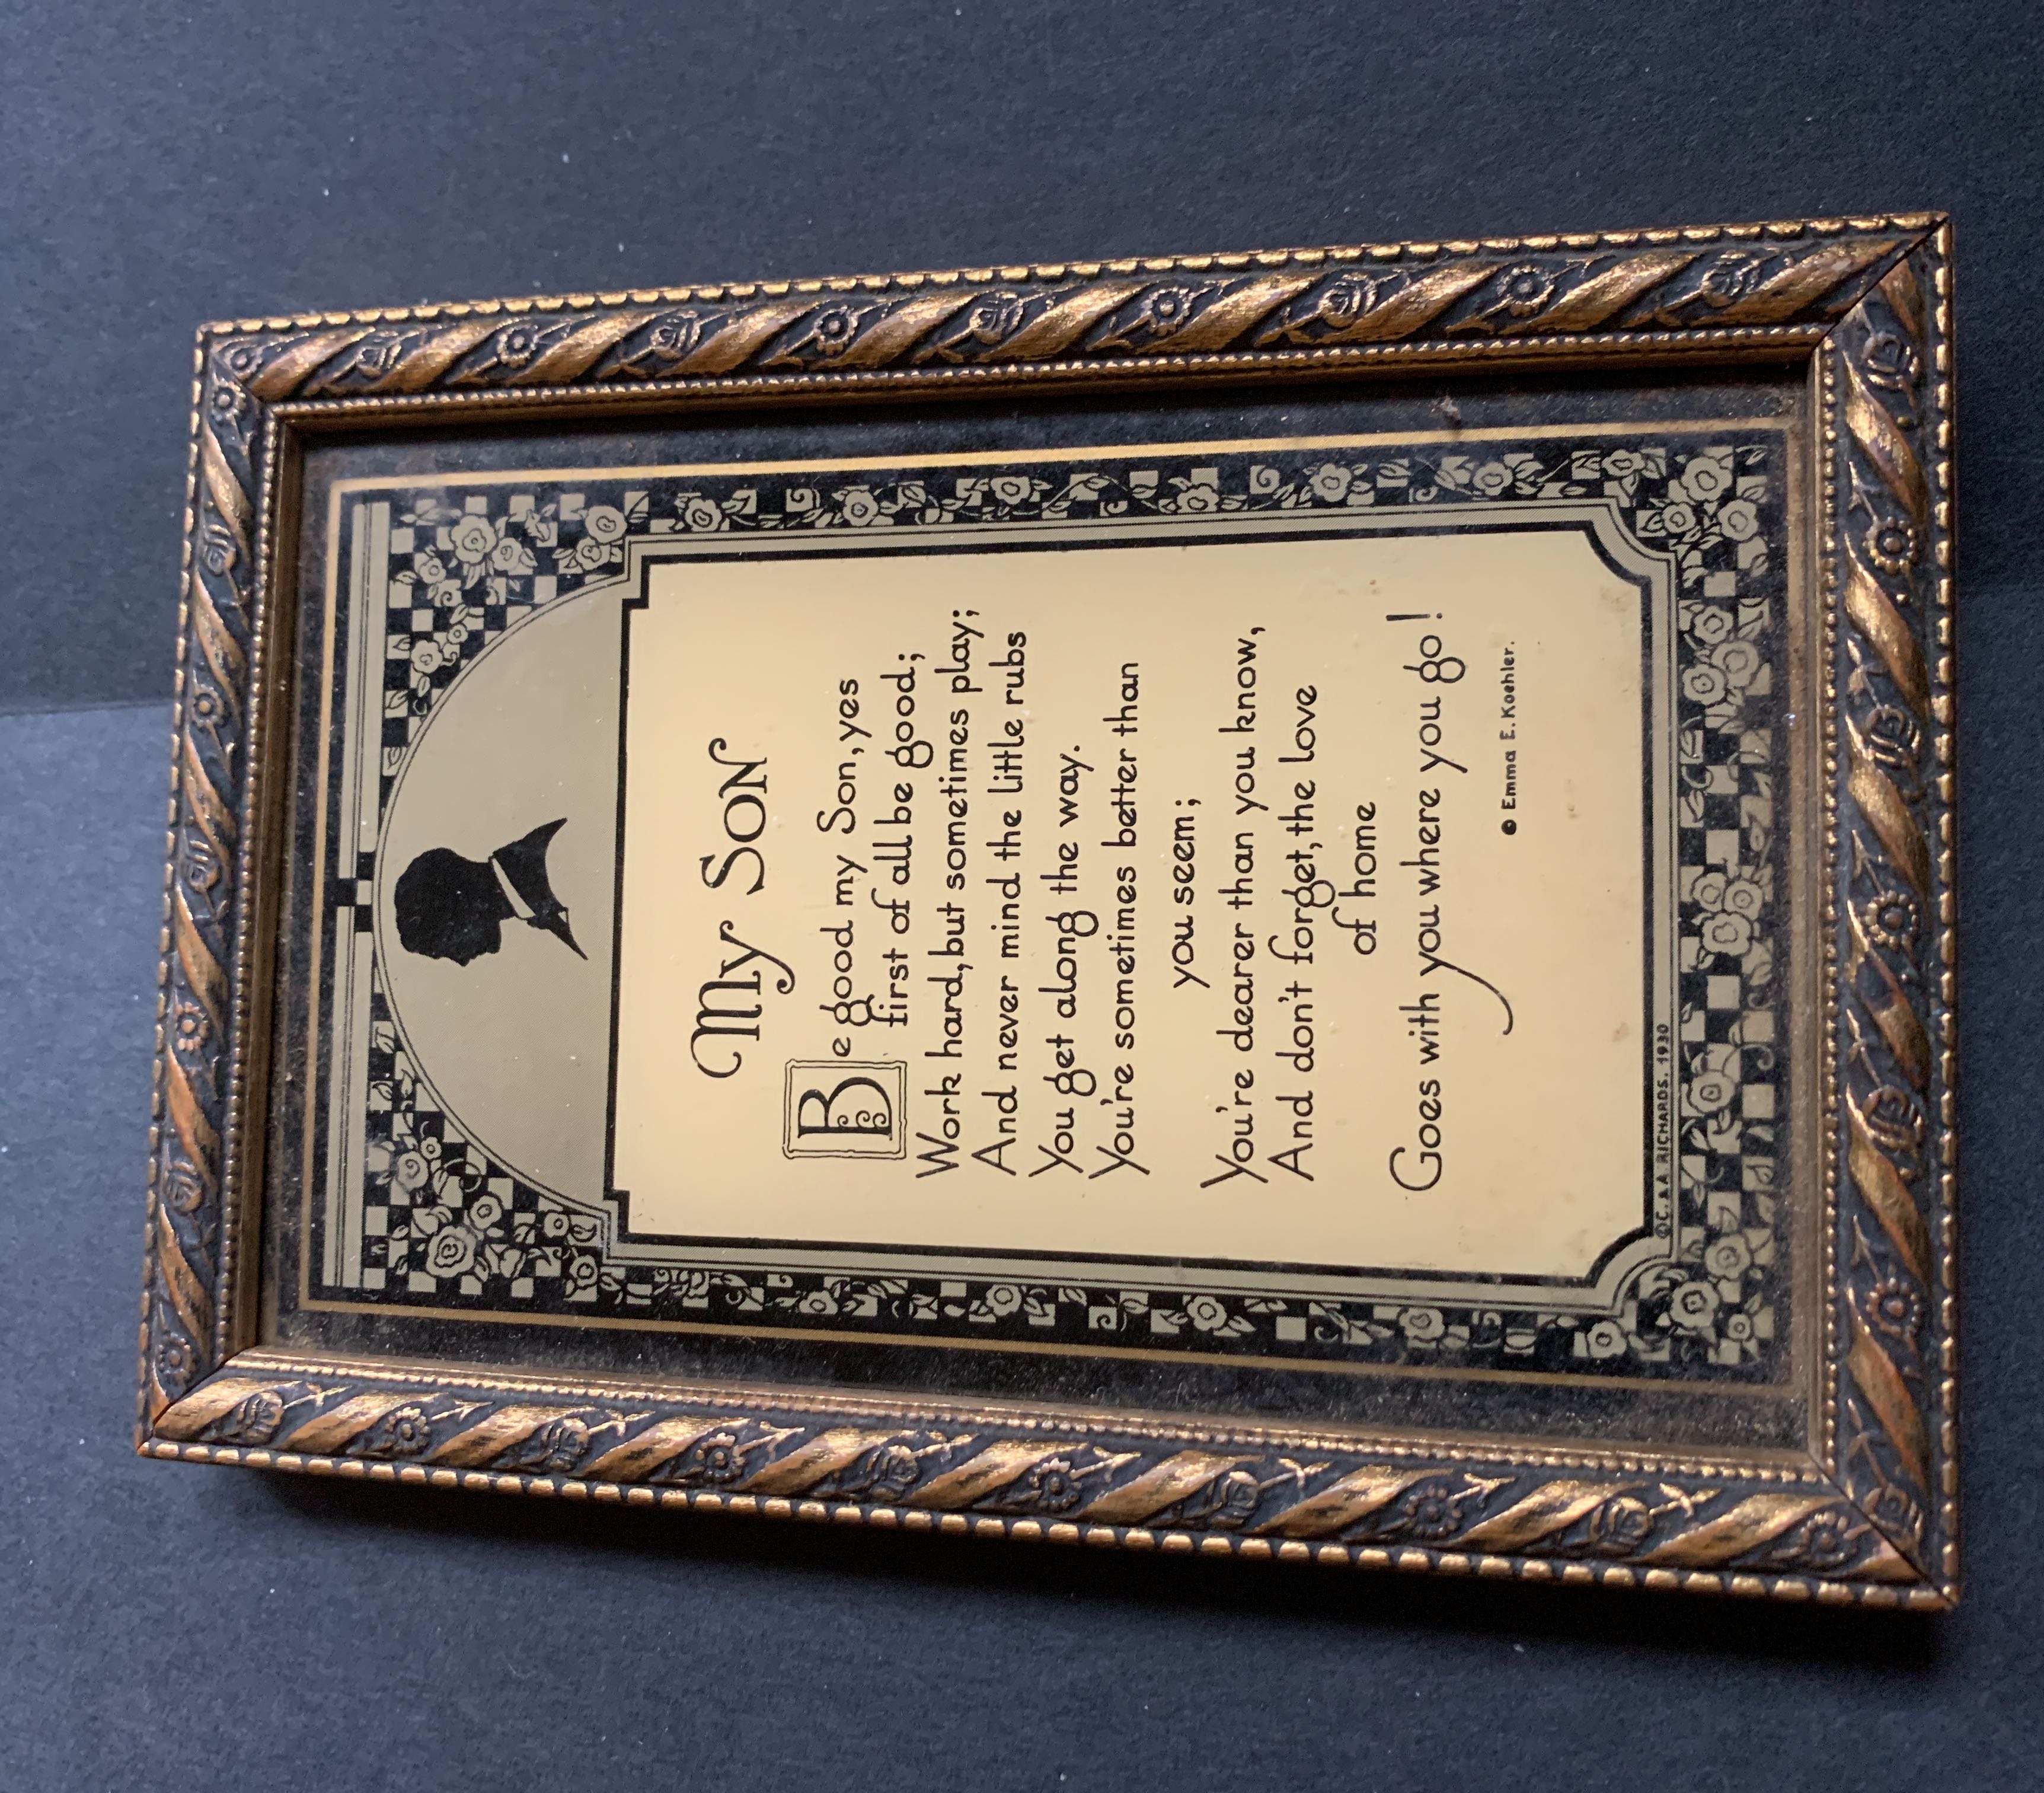 My Son
Be good my Son, yes
first of all be good;
Work hard, but sometimes play;
And never mind the little rubs
You get along the way.
You're sometimes better than
you seem;
You're dearer than you know,
And don't forget, the love
of home
Goes with you where you go!
© Emma E. Koehler.
© C. & A. RICHARDS. 1930